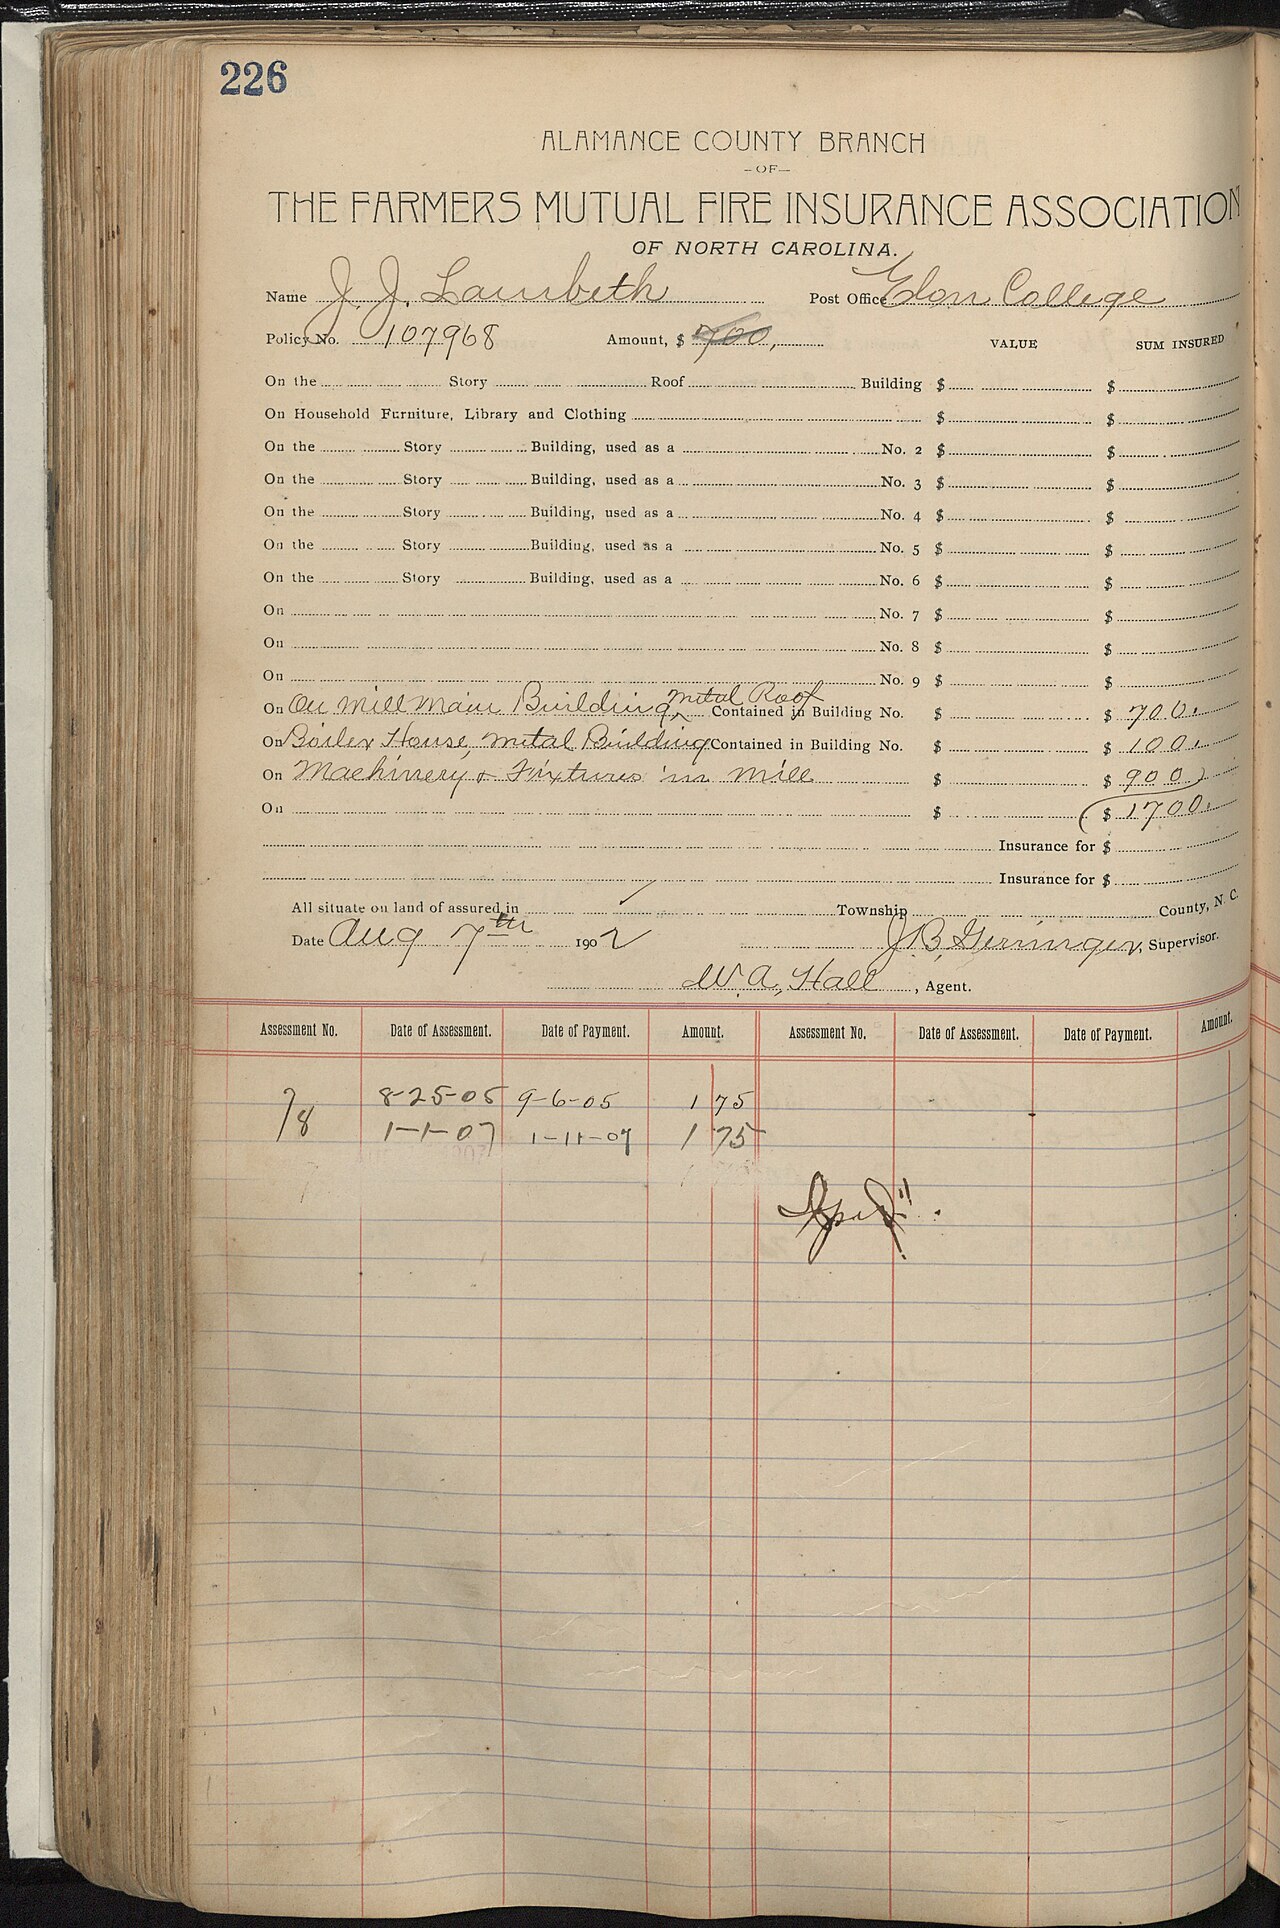 226
ALAMANCE COUNTY BRANCH
-OF-
THE FARMERS MUTUAL FIRE INSURANCE ASSOCIATION
OF NORTH CAROLINA.
Name J. J. Lambeth Post Office Elon College
Policy No. 107968 Amount, $ 700, VALUE SUM INSURED
On the Story Roof Building $ $
On Household Furniture, Library and Clothing $ $
On the Story Building, used as a No. 2 $ $
On the Story Building, used as a No. 3 $ $
On the Story Building, used as a No. 4 $ $
On the Story Building, used as a No. 5 $ $
On the Story Building, used as a No. 6 $ $
On No. 7 $ $
On No. 8 $ $
On No. 9 $ $
On On Mill Main Building, Metal Roof Contained in Building No. $ $ 700.
On Boiler House, Metal Building Contained in Building No. $ $ 100.
On Machinery & Fixtures in Mill $ $ 900
On $ $ 1700.
Insurance for $
Insurance for $
All situate on land of assured in Township County, N. C.
Date Aug 7th 1902 J. B. Gerringer, Supervisor.
W. A. Hall, Agent.
Assessment No. Date of Assessment. Date of Payment. Amount. Assessment No. Date of Assessment. Date of Payment. Amount.
7 8-25-05 9-6-05 1 75
8 1-1-07 1-11-07 1 75